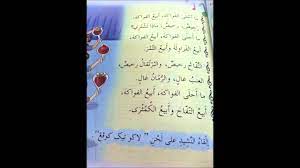 ما أحلى الفواكه، أبيع الفواكه،
أبيع الفراولة وأبيع التمر.
التفاح رخيص، والبرتقال رخيص،
العنب غال، والرمان غال.
ما أحلى الفواكه، أبيع الفواكه،
أبيع التفاح وأبيع الكمثرى.
إلقاء النشيد على لحن "لاكو نيك كوفغ".